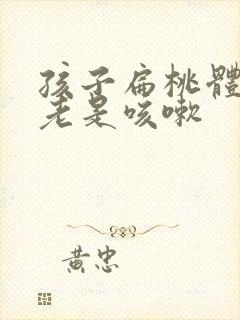 孩子扁桃體
老是咳嗽
黃忠